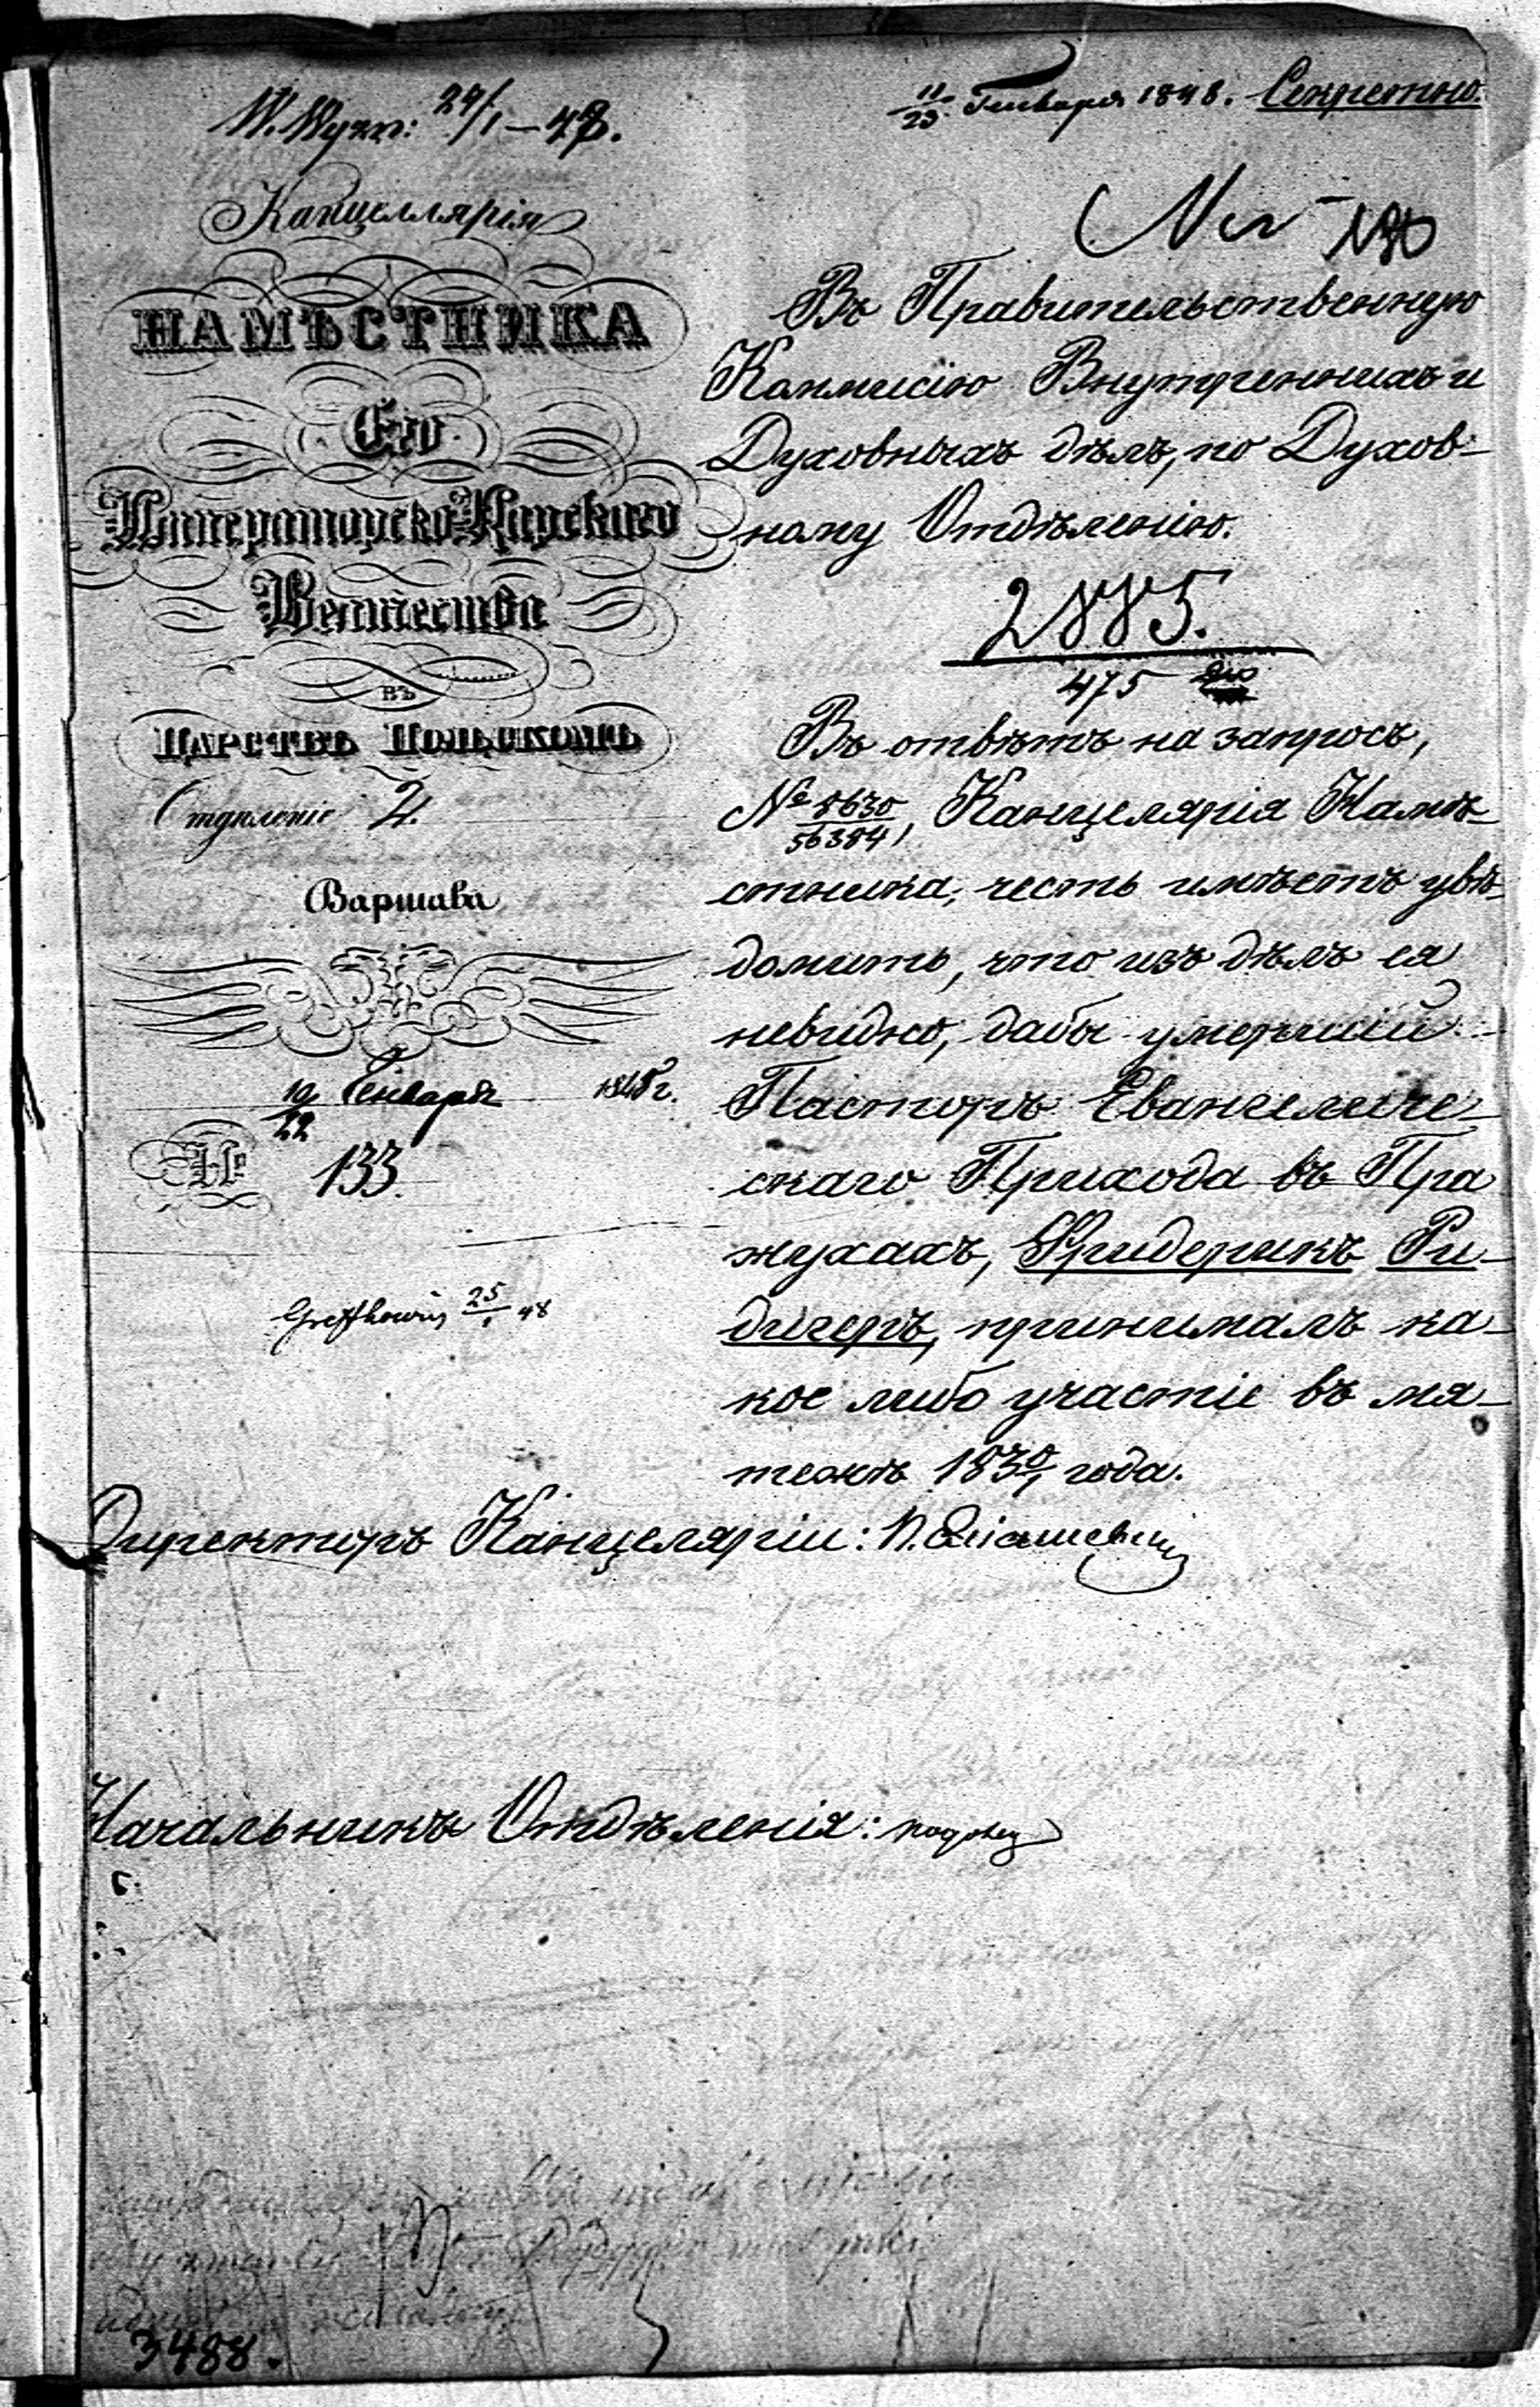 W. Wyzn: 24/1 – 48.
11/23 Генваря 1848. Секретно.
Канцеллярія
НАМѢСТНИКА
Его
Императорско-Царскаго
Величества
въ
Царствѣ Польскомъ
Отдѣленіе 2.
Варшава
10/22 Генваря 1848 г.
№ 133.
25/1 48
Въ Правительственную
Коммисію Внутреннихъ и
Духовныхъ дѣлъ, по Духов-
ному Отдѣленію.
2885.
475
Въ отвѣтъ на запросъ,
№ 8630/56384, Канцелярія Намѣ-
стника, честь имѣетъ увѣ-
домить, что изъ дѣлъ ея
невидно, дабы умершій
Пасторъ Евангеличе-
скаго Прихода въ Пра
жухахъ, Фридерикъ Ри-
дигеръ, принималъ ка-
кое либо участіе въ мя-
тежѣ 1830/1 года.
Директоръ Канцеляріи:
Начальникъ Отдѣленія:
3488.